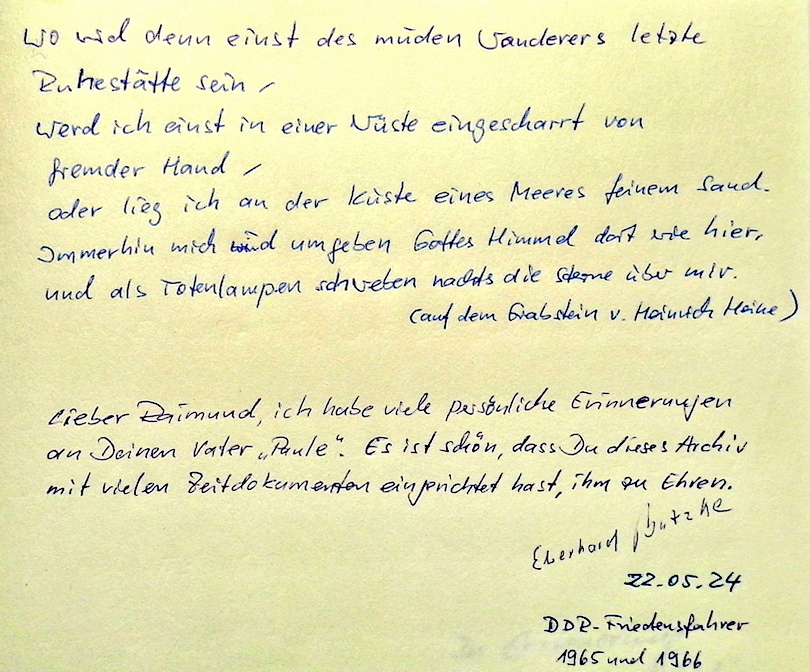 Wo wird denn einst des müden Wanderers letzte
Ruhestätte sein,
Werd ich einst in einer Wüste eingescharrt von
fremder Hand,
oder lieg ich an der Küste eines Meeres feinem Sand.
Immerhin mich wird umgeben Gottes Himmel dort wie hier,
und als Totenlampen schweben nachts die Sterne über mir.
(auf dem Grabstein v. Heinrich Heine)
Lieber Raimund, ich habe viele persönliche Erinnerungen
an Deinen Vater „Paule“. Es ist schön, dass Du dieses Archiv
mit vielen Zeitdokumenten eingerichtet hast, ihm zu Ehren.
Eberhard Butzke
22.05.24
DDR-Friedensfahrer
1965 und 1966